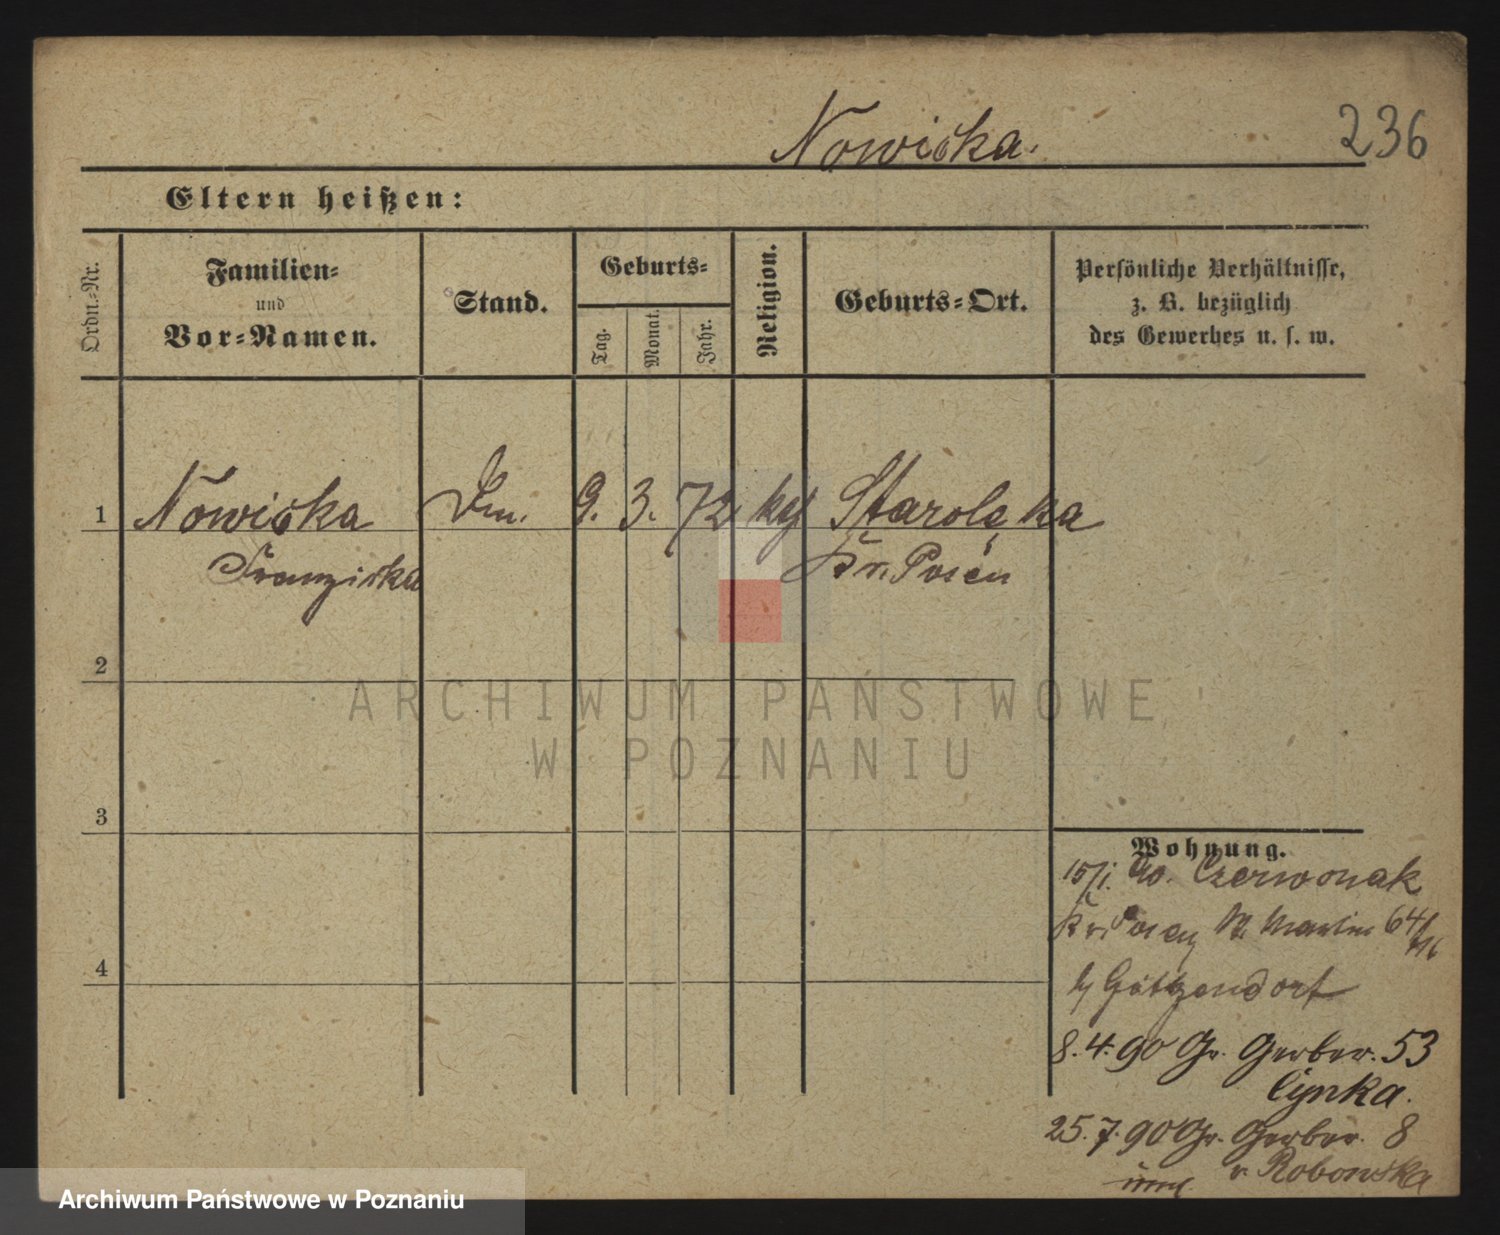 Nowicka.
236
Eltern heißen:
Ordn.=Nr.
Familien=
und
Vor=Namen.
Stand.
Geburts=
Tag.
Monat.
Jahr.
Religion.
Geburts=Ort.
Persönliche Verhältnisse,
z. B. bezüglich
des Gewerbes u. s. w.
1 Nowicka 9. 3. 72 Starolęka
Franziska Kr. Posen
2
3
4
Wohnung.
15/1. 90. Czerwonak
Kr. Posen St. Martin 64/
Götzendorf
8. 4. 90 Gr. Gerber. 53
Cynka.
25. 7. 90 Gr. Gerber. 8
v. Robowska
ARCHIWUM PAŃSTWOWE
W POZNANIU
Archiwum Państwowe w Poznaniu